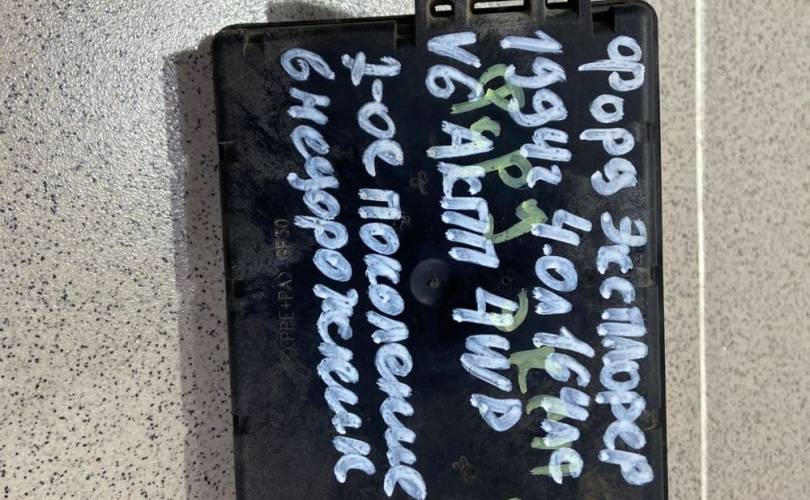 Форд Эксплорер
1994г 4.0л 164лс
V6 АКПП 4WD
1-ое поколение
внедорожник
>PPE+PA< GF30